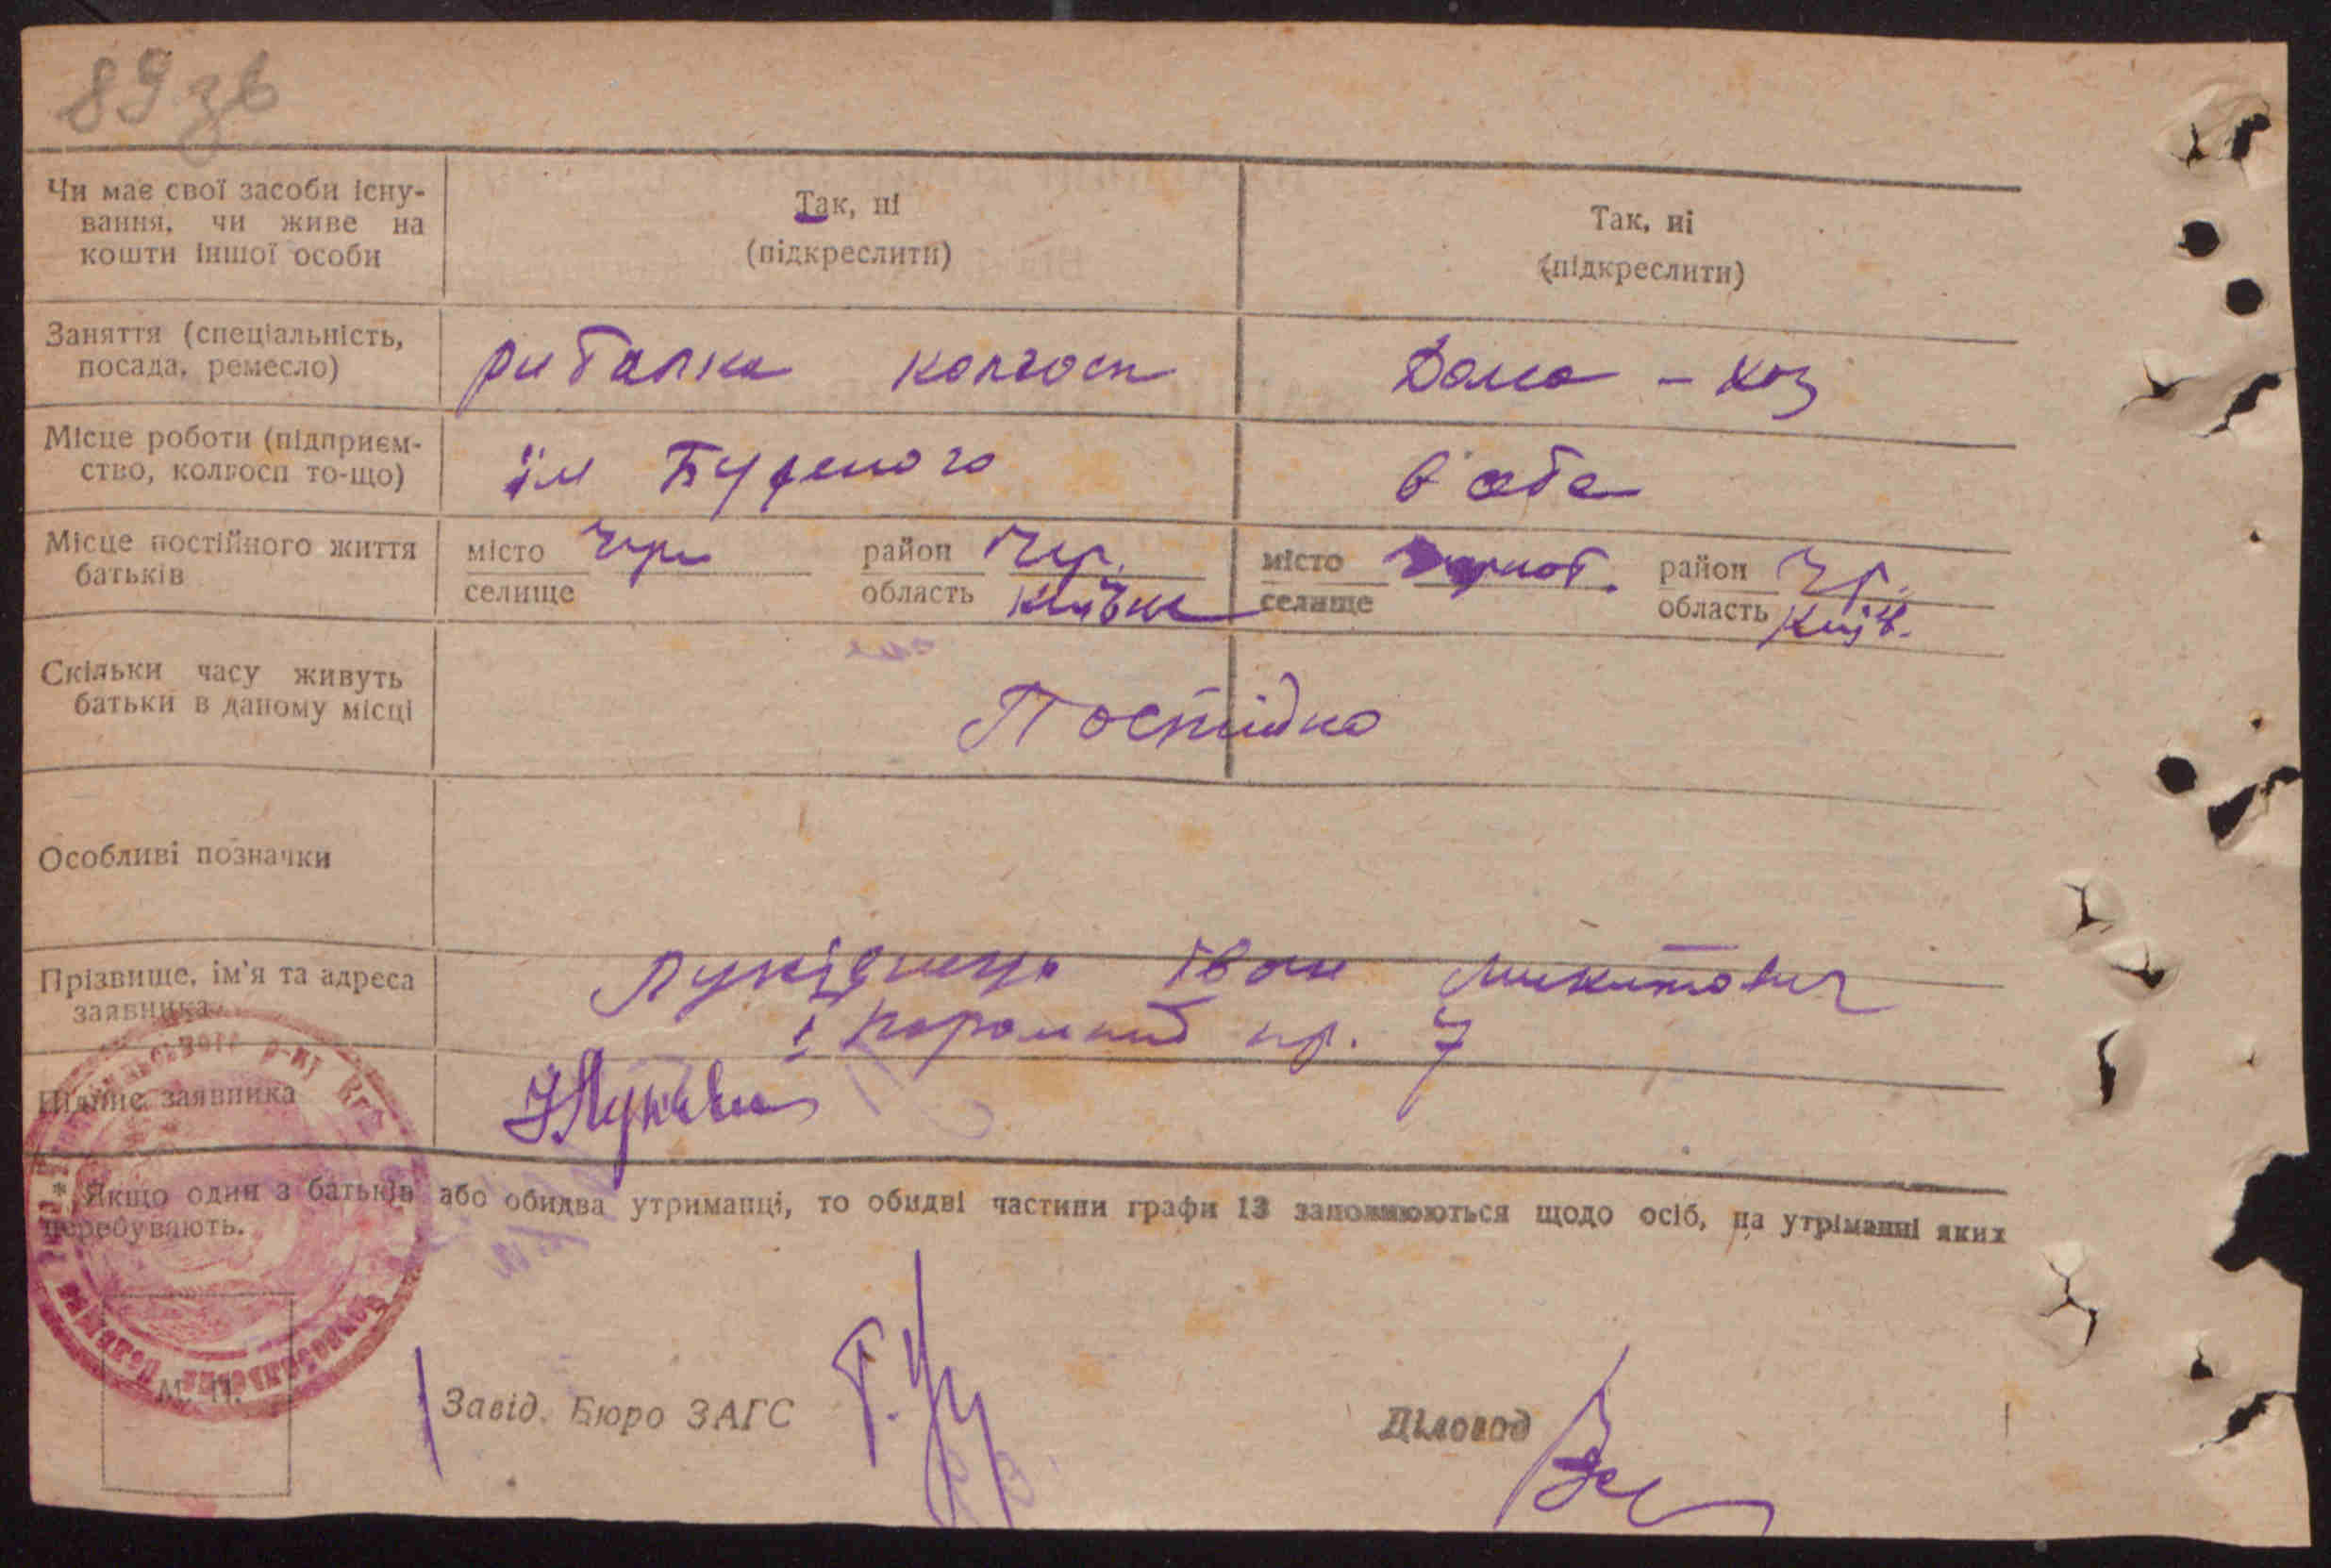 89 зв
Чи має свої засоби існу-
вання, чи живе на
кошти іншої особи
Так, ні
(підкреслити)
Так, ні
(підкреслити)
Заняття (спеціальність,
посада, ремесло)
рибалка колгосп
Дома - хоз
Місце роботи (підприєм-
ство, колгосп то-що)
ім Буденого
в себе
Місце постійного життя
батьків
місто
селище
район Чер.
область
місто
селище
район
область Київ.
Скільки часу живуть
батьки в даному місці
Постійно
Особливі позначки
Прізвище, ім'я та адреса
заявника
Іван Микитович
пр. 7
Підпис заявника
* Якщо один з батьків або обидва утриманці, то обидві частини графи 13 заповнюються щодо осіб, на утріманні яких
перебувають.
М. П.
Завід. Бюро ЗАГС
Діловод